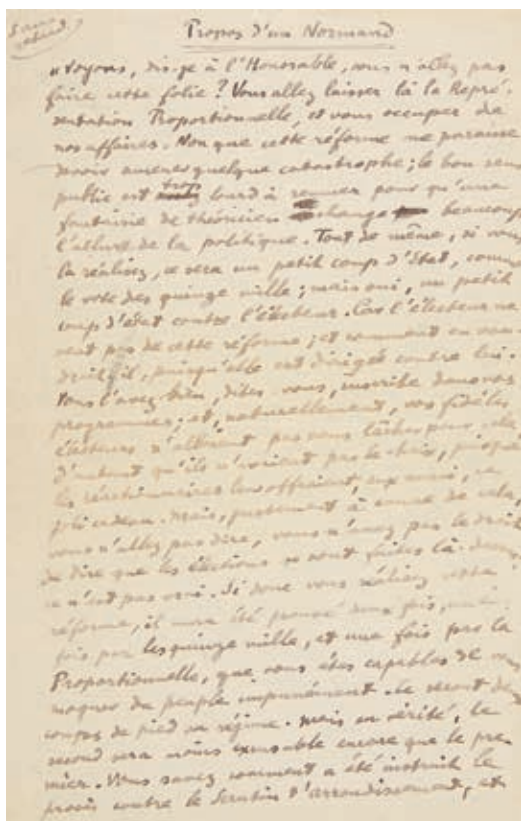 Propos d'un Normand
"Voyons, dis-je à l'Honorable, vous n'allez pas
faire cette folie ? Vous allez laisser là la Repré-
sentation Proportionnelle, et vous occuper de
nos affaires. Non que cette réforme me paraisse
devoir amener quelque catastrophe ; le bon sens
public est trop lourd à remuer pour qu'une
fantaisie de théoricien change beaucoup
l'allure de la politique. Tout de même, si vous
la réalisez, ce sera un petit coup d'État, comme
le vote des quinze mille ; mais oui, un petit
coup d'état contre l'électeur. Car l'électeur ne
veut pas de cette réforme ; et comment en vou-
drait-il, puisqu'elle est dirigée contre lui.
Vous l'avez bien, dites vous, inscrite dans vos
programmes ; et, naturellement, vos fidèles
électeurs n'allaient pas vous lâcher pour cela,
d'autant qu'ils n'avaient pas le choix, puisque
les réactionnaires leur offraient, eux aussi, ce
joli cadeau. Mais, justement à cause de cela,
vous n'allez pas dire, vous n'avez pas le droit
de dire que les élections se sont faites là-dessus
ce n'est pas vrai. Si donc vous réalisez cette
réforme, il aura été prouvé deux fois, une
fois par les quinze mille, et une fois par la
Proportionnelle, que vous êtes capables de vous
moquer du peuple impunément. Ce seront deux
coups de pied au régime. Mais en vérité, le
second sera moins excusable encore que le pre-
mier. Vous savez comment a été instruit le
procès contre le Scrutin d'arrondissement, et